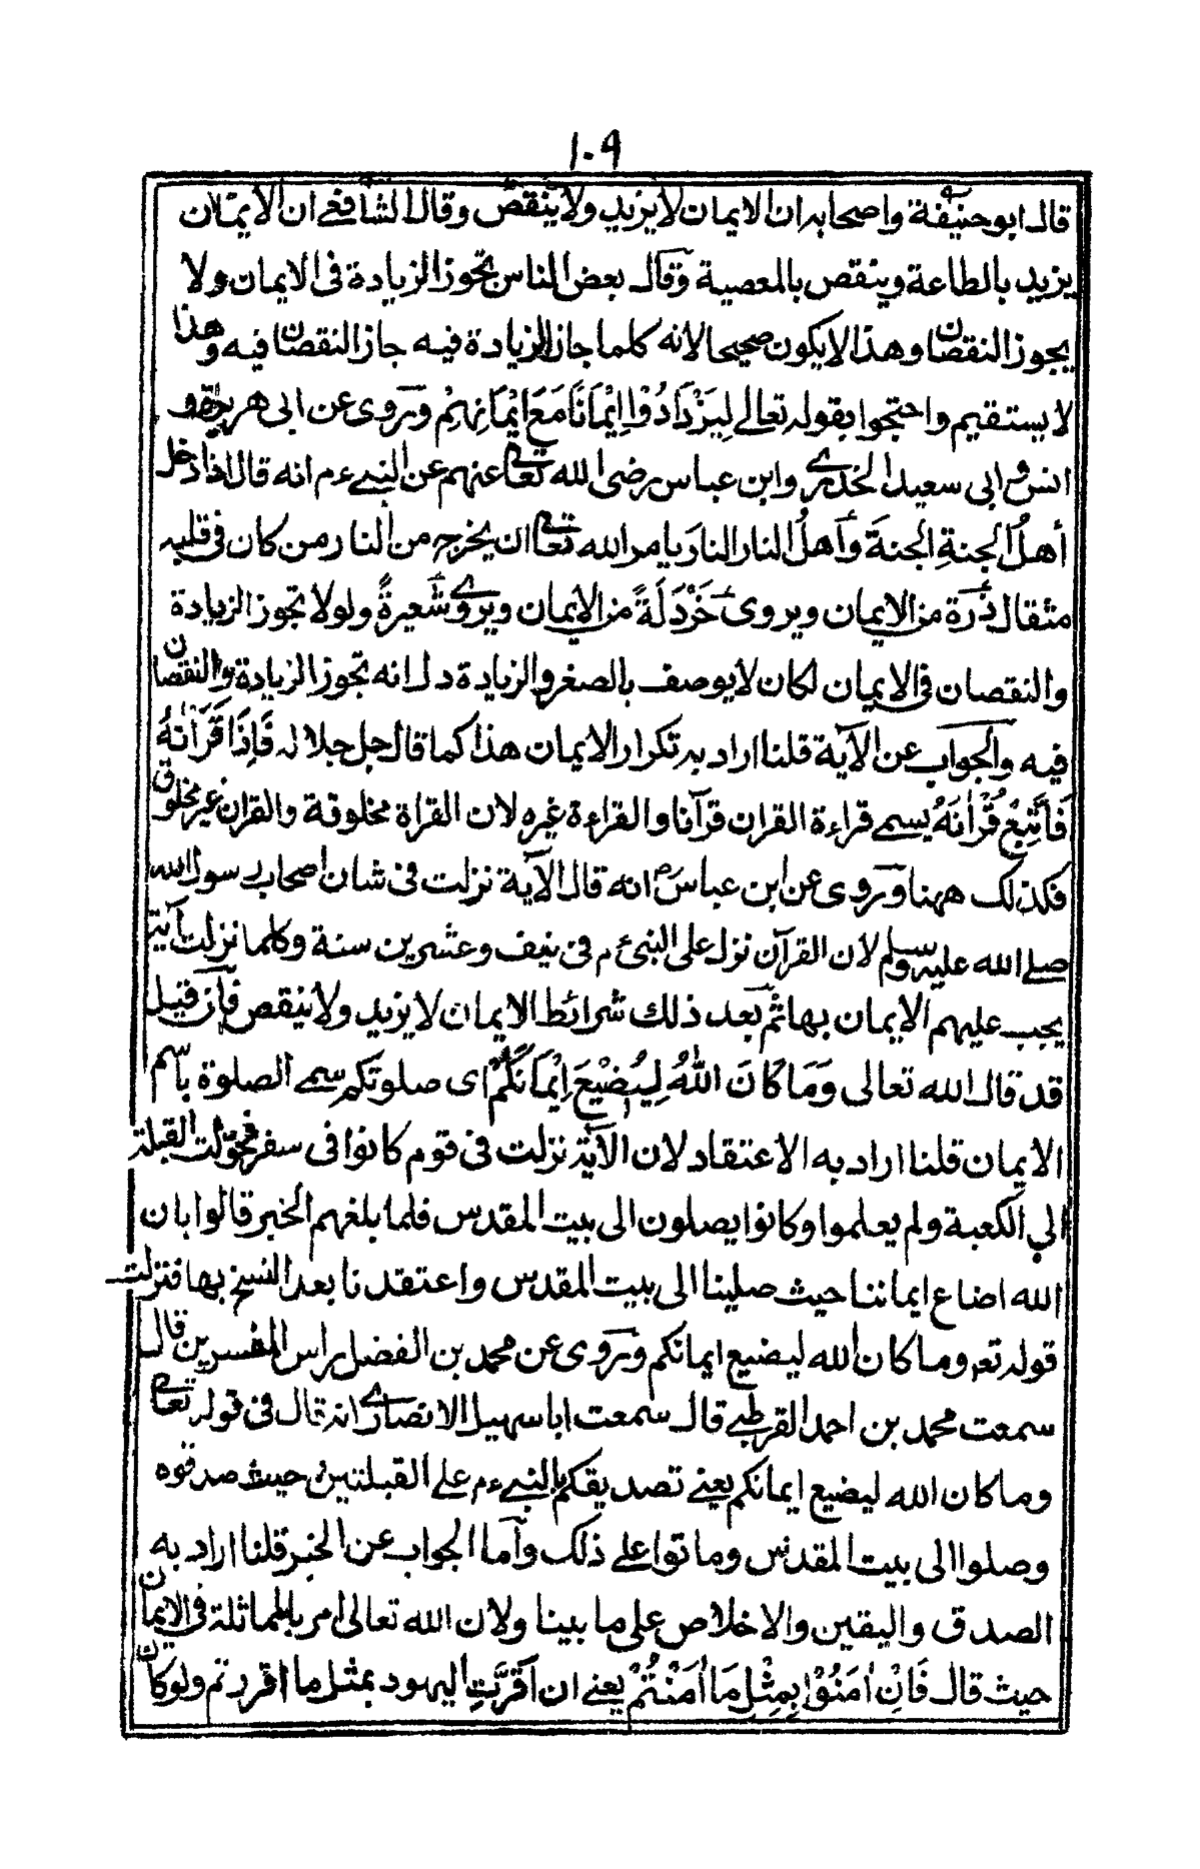 ١٠٩
قال ابو حنيفة واصحابه ان الايمان لا يزيد ولا ينقص وقال الشافعے ان الايمان
يزيد بالطاعة وينقص بالمعصية وقال بعض الناس تجوز الزيادة فى الايمان ولا
يجوز النقصان وهذا لا يكون صحيحا لانه كلما جاز الزيادة فيه جاز النقصان فيه وهذا
لا يستقيم واحتجوا بقوله تعالے لِيَزْدَادُوْا اِيْمَانًا مَعَ اِيْمَانِهِمْ وروى عن ابى هريرة و
انس و ابى سعيد الخدرے وابن عباس رضى الله تعا عنهم عن النبے ءم انه قال اذا دخل
أهلُ الجنةِ الجنةَ وأهلُ النار النارَ يامر الله تعا ان يخرج من النار من كان فى قلبه
مثقال ذرة من الايمان ويروى خَرْدَلَةً من الايمان ويروے شَعيرةً ولولا تجوز الزيادة
والنقصان فى الايمان لكان لا يوصف بالصغر والزيادة دل انه تجوز الزيادة والنقصان
فيه والجواب عن الآية قلنا اراد به تكرار الايمان هذا كما قال جل جلاله فَاِذَا قَرَاْنٰهُ
فَاتَّبِعْ قُرْاٰنَهُ يسمے قراءة القران قرآنا والقراءة غيره لان القراة مخلوقة والقران غير مخلوق
فكذلك ههنا وروى عن ابن عباس رض انه قال الآية نزلت فى شان اصحاب رسول الله
صلے الله عليه وسلم لان القرآن نزل على النبى ءم فى نيف وعشرين سنة وكلما نزلت آية
يجب عليهم الايمان بها ثم بعد ذلك شرائط الايمان لا يزيد ولا ينقص فان قيل
قد قال الله تعالى وَمَا كَانَ اللهُ لِيُضِيْعَ اِيْمَانَكُمْ اى صلوتكم سمے الصلوة باسم
الايمان قلنا اراد به الاعتقاد لان الآية نزلت فى قوم كانوا فى سفر فحولت القبلة
الي الكعبة ولم يعلموا وكانوا يصلون الى بيت المقدس فلما بلغهم الخبر قالوا بان
الله اضاع ايماننا حيث صلينا الى بيت المقدس واعتقدنا بعد النسخ بها فنزلت
قوله تعه وما كان الله ليضيع ايمانكم وروى عن محمد بن الفضل راس المفسرين قال
سمعت محمد بن احمد القرطبے قال سمعت ابا سهيل الانصارے انه قال فى قوله تعا
وما كان الله ليضيع ايمانكم يعنے تصديقكم بالنبے ءم علے القبلتين حيث صدقوه
وصلوا الى بيت المقدس وماتوا علے ذلك واما الجواب عن الخبر قلنا اراد به
الصدق واليقين والاخلاص على ما بينا ولان الله تعالى امر بالمماثلة فى الايمان
حيث قال فَاِنْ اٰمَنُوْا بِمِثْلِ مَا اٰمَنْتُمْ يعنے ان اَقَرَّتِ اليهود بمثل ما اقررتم ولو كان